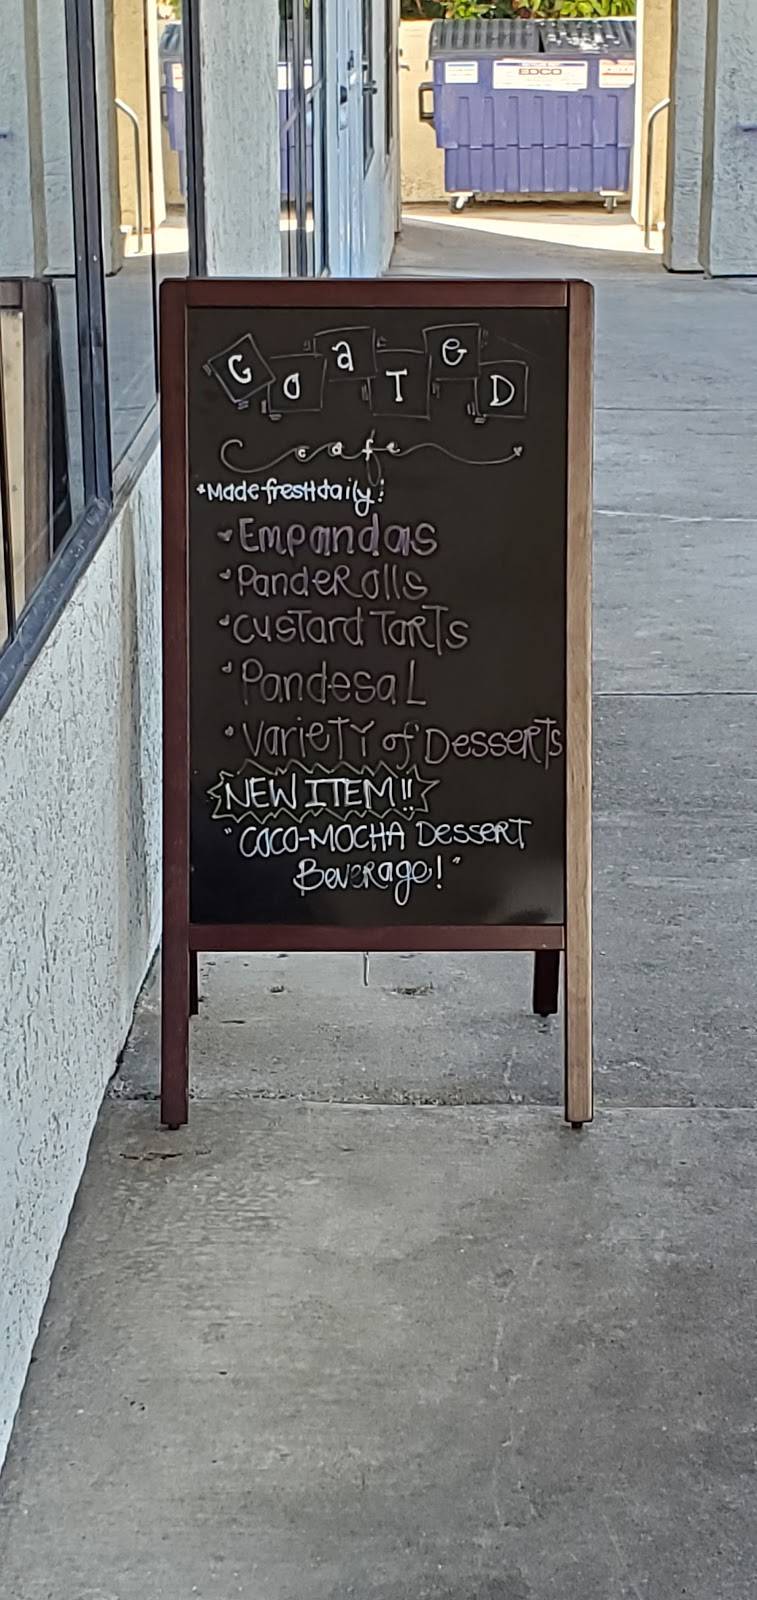 EDCO
GOaTeD
cafe
*Made fresh daily:
•Empandas
•PandeRolls
•Custard Tarts
•PandesaL
•Variety of Desserts
NEW ITEM!!
"COCO-MOCHA Dessert
Beverage!"